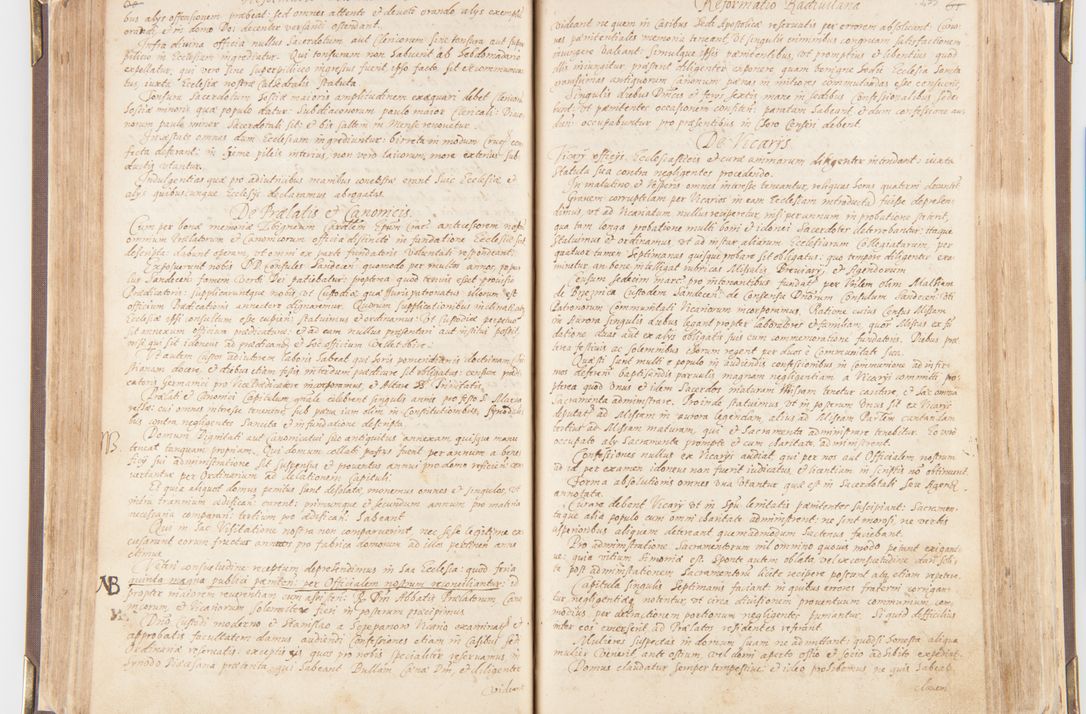 bus alys exemplo praebeat: sed omnes attente et devote orando alys exemplo
orandi, et in domo Dei decenter versandi ostendant.
Infra divina officia nullus Sacerdotum aut Clericorum sine tonsura aut super
pellicio in Ecclesiam ingrediatur. Qui tonsuram non habuerit ab hebdomadario
expellatur, qui vero sine superpellicio ingressus fuerit ipso facto sit excommunica
tus, iuxta Ecclesiae nostrae Cathedralis statuta.
Tonsura Sacerdotum hostiae maioris amplitudinem exaequari debet
hostiae minoris quae populo datur: Subdiaconorum paulo maior Clericali: Diaco
norum paulo minor Sacerdotali sit: et bis saltem in Mense renovetur.
In aestate omnes dum Ecclesiam ingrediuntur: birreta in modum Crucis con
fecta deferant: in hyeme pileis interius, non vero laicorum more exterius sub
ductis utantur.
Indulgentias quae pro adiutricibus manibus concessae erant huic Ecclesiae et
alys quibuscunque Ecclesys declaramus abrogatas.
De Praelatis et Canonicis.
Cum per bonae memoriae Sbigneum Cardlem Epum Crac. antecessorem nostrum
omnium Praelatorum et Canonicorum officia distincte in fundatione Ecclesiae sint
descripta: dabunt operam, ut omni ex parte fundatoris voluntati respondeant.
Exposuerunt nobis DD. Consules Sandecen. quomodo per multos annos popu
lus Sandecen famem Verbi Dei patiebatur: propterea quod tenuis esset provisio
Praedicatoris: supplicaruntque nobis, ut Custodia quae iuris patronatus illorum est
officium Praedicationis annectere dignaremur. Quorum supplicationibus inclinati,
Ecclesiae ipsi consultum esse cupien: statuimus et ordinamus: ut Custodiae perpetuo
sit annexum officium praedicaturae: et ad eam nullus praesentari aut institui possit,
nisi qui sit idoneus ad praedicandum et hoc officium
Ut autem Custos adiutorem laboris habeat qui horis pomeridianis doctrinam Chri
stianam docere et diebus etiam festis interdum praedicare sit obligatus: censum praedi
catoris Germanici pro Vicepraedicatore incorporamus et Altare SS. Trinitatis.
Praelati et Canonici Capitulum generale celebrent singulis annis pro festo S. Mariae
cui omnes interesse teneantur sub paena iam olim in Constitutionibus Synodali
bus contra negligentes sancita et in fundatione descripta.
NB Domum Dignitati aut Canonicatui suo antiquitus annexam quisque manu
teneat tanquam propriam. Qui domum collabi passus fuerit per annum a bene
ficy sui administratione sit suspensus et proventus annui pro domo reficien: con
vertantur per Ordinarium ad delationem Capituli.
Et quia aliquot domus penitus sunt desolatae, monemus omnes et singulos, ut
intra triennium aedificari curent: primumque et secundum annum pro materia
necessaria comparan: tertium pro aedifican: habeant.
Qui in hac Visitatione nostra non comparuerint nec sese legitime ex
cusarunt eorum fructus annuos pro fabrica domorum ad illos pertinen: arres
tamus.
NB Veteri consuetudine receptum deprehendimus in hac Ecclesia: quod feria
quinta magna publici paeniten: per Officialem nostrum reconcilientur: id
propter maiorem reverentiam cum assisten: R. Dni Abbatis Praelatorum Cano
nicorum, et Vicariorum solemniter fieri in posterum praecipimus.
Dno Custodi moderno et Stanislao a Szczepanow Vicario examinatis et
approbatis facultatem damus audiendi Confessiones etiam in Casibus sedi
Ordinariae reservatis: exceptis ys quos pro nobis specialiter reservamus in
Synodo Diaecesana praetenta, qui habeant Bullam Caenae Dni, et diligenter
videant
Reformatio Radziviliana
videant ne quem in Casibus Sedi Apostolicae reservatis per errorem absolvant: Cano
nes paenitentiales memoria teneant, ut singulis criminibus congruam satisfactionem
iniungere valeant: simulque ipsis paenitentibus, ut promptius et libentius quod
illis iniungitur praestent diligenter exponere quam benigne hodie Ecclesia Sancta
transferat antiquorum Canonum paenas in mitiores commutandas esse censuerit.
Singulis diebus Dnicis et ferys, festis mane in sedibus Confessionalibus sede
bunt, ut paenitentes occasionem confiten: paratam habeant, et dum confessione au
dien: occupabuntur pro praesentibus in Choro Censeri debent.
De Vicarys.
Vicary officys Ecclesiasticis et curae animarum diligenter intendant: iuxta
statuta sua contra negligentes procedendo.
In matutino et Vesperis omnes interesse teneantur, reliquas horas quaterni decantent.
Gravem corruptelam per Vicarios in eam Ecclesiam introductam fuisse deprehen
dimus, ut ad Vicariatum nullus reciperetur, nisi per annum in probatione steterit,
qua tam longa probatione multi boni et idonei Sacerdotes deterrebantur: itaque
statuimus et ordinamus, ut ad instar aliarum Ecclesiarum Collegiatarum, per
quatuor tantum septimanas quisque probare sit obligatus: quo tempore diligenter exa
minetur an bene intelligat rubricas Missalis, Breviary, et Agendorum.
Censum sedecim marc: pro intonantibus fundat: per Venlem olim Mathiam
de Brzeznica Custodem Sandecen: de Consensu Dnorum Consulum Sandecen toti
Patronorum Communitati Vicariorum incorporamus. Ratione cuius Census Missam
in Aurora singulis diebus legant propter laboratores et familiam, quos Missas ex fun
datione duas aut ex alys obligatis suis cum commemoratione fundatoris. Diebus prae
terea festivis ac solemnibus chorum regent per duos e Communitate sua.
Quaesti sunt multi e populo in audiendis confessionibus in communione ad infir
mos deferen: baptisandis parvulis magnam negligentiam a Vicarys committi pro
pterea quod Unus et idem Sacerdos maturam Missam tenetur canere, et hac omnia
Sacramenta administrare. Proinde statuimus ut in posterum Unus sit ex Vicarys
deputatus ad Missam in aurora legendam, alius ad Missam BVM: cantandam
tertius ad Missam maturam, qui et Sacramenta administrare tenebitur. Eo vero
occupato, aly Sacramenta prompte et cum charitate administrent.
Confessiones nullus ex Vicarys audiat qui per nos aut Officialem nostrum
ad id per examen idoneus non fuerit iudicatus, et licentiam in scriptis non obtinuerit.
Forma absolutionis omnes una utantur quae est in Sacerdotali seu Agenda
annotata.
Curare debent Vicary ut in Spu lenitatis paenitentes suscipiant: Sacramen
taque alia populo cum omni charitate administrent: ne sint morosi, ne verbis
asperioribus aliquem deterreant quemadmodum hactenus faciebant.
Pro administratione Sacramentorum nil omnino quovis modo petant, exigantve:
quia vitium Simoniae est. Sponte autem oblata, vel ex consuetudine dari soli
ta post administrationem Sacramentorum licite recipere poterunt, absque etiam repetere.
Capitula singulis Septimanis faciant in quibus errores fraterni corrigan
tur, negligentiae notentur, ut circa divisionem proventuum communium com
modius per detractionem portionum negligentes puniantur. Si quid difficultatis
inter eos emerserit ad Praelatos residentes referant.
Mulieres suspectas in domum suam ne admittant: quodsi honesta aliqua
mulier venerit, ante ostium, vel domi aperto ostio et socio adhibito expediat.
Domus claudatur semper tempestive: et ideo prohibemus ne quis habeat
clavem